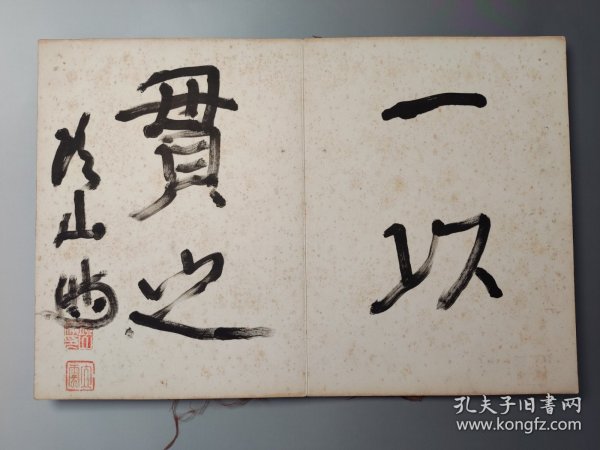 一以
貫之
山
孔夫子旧书网
www.kongfz.com